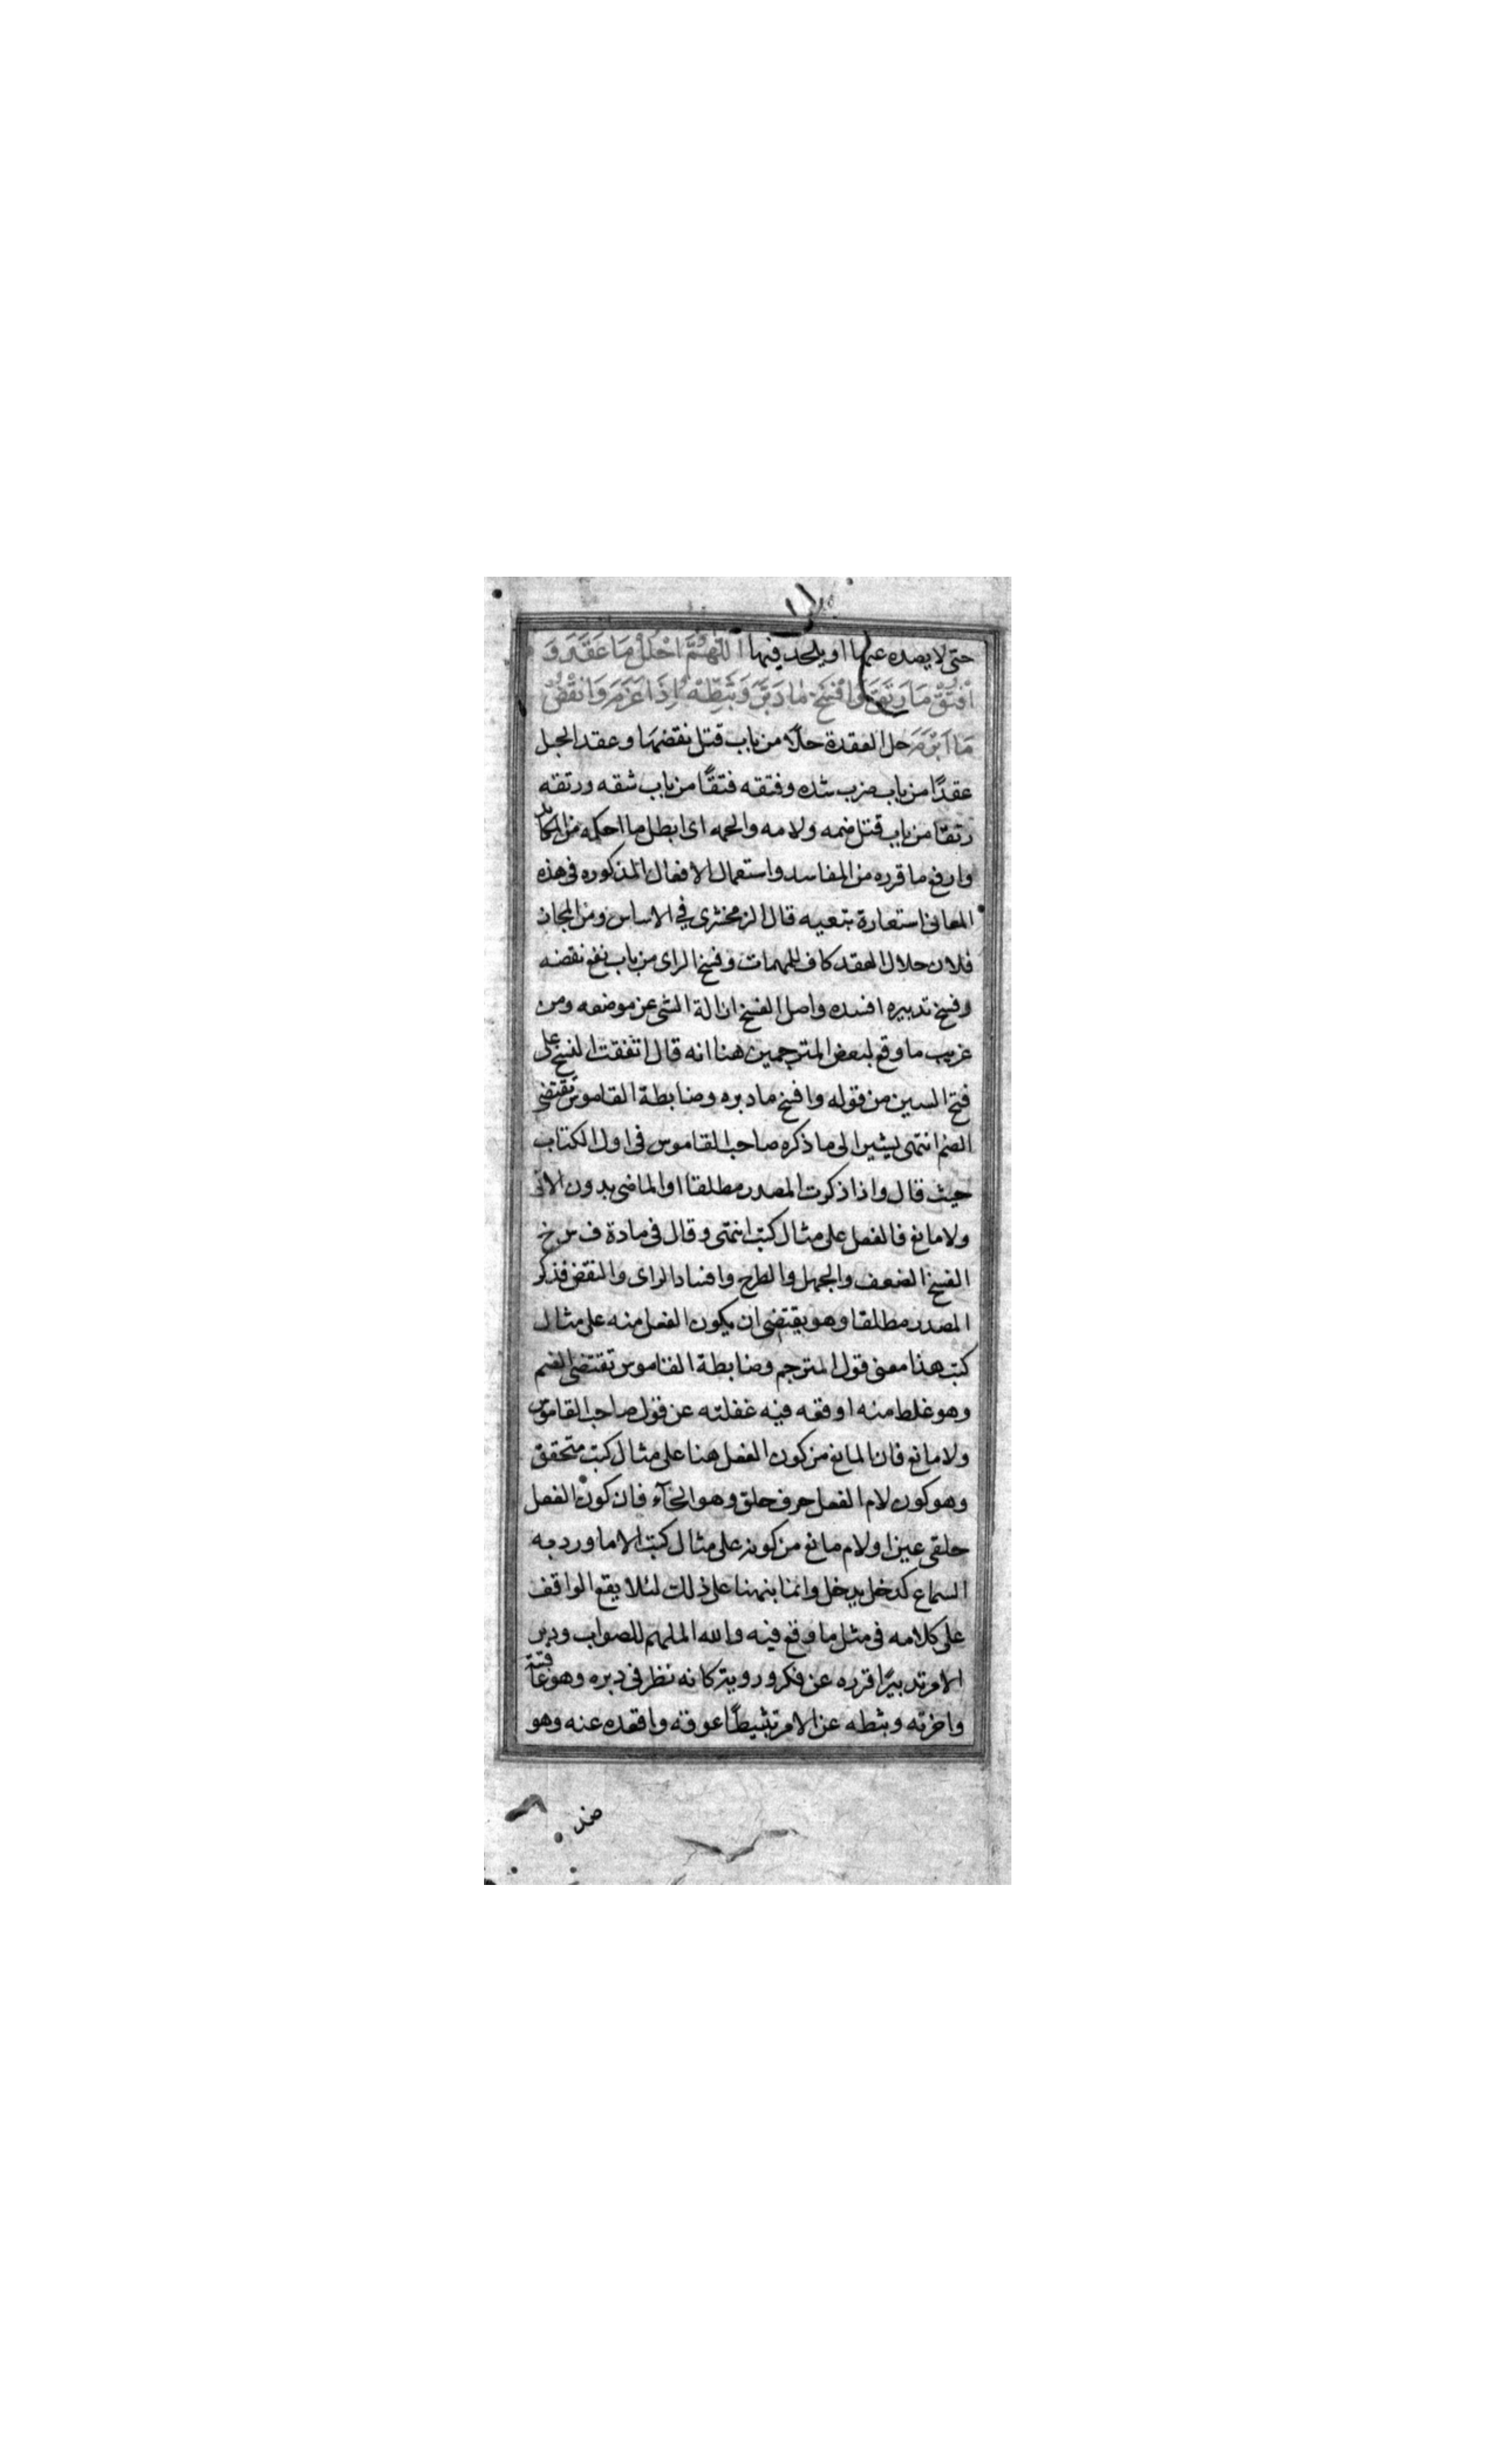 حتى لا يصده عنها او يلحد فيها اَللّٰهُمَّ احْلُلْ مَا عَقَدَ وَ
افْتُقْ مَا رَتَقَ وَافْسَخْ مَا دَبَّرَ وَثَبِّطْهُ اِذَا عَزَمَ وَانْقُضْ
مَا اَبْرَمَ حل العقدة حلًا من باب قتل نقضها وعقد الحبل
عقدًا من باب ضرب شده وفتقه فتقًا من باب شقه ورتقه
رتقا من باب قتل ضمه ولامه والحمه اى ابطل ما احكمه من المكائد
وارفع ما قرره من المفاسد واستعمال الافعال المذكوره فى هذه
المعانى استعارة تبعيه قال الزمخشرى في الاساس ومن المجاز
فلان حلال العقد كاف للمهمات وفسخ الراى من باب نفع نقضه
وفسخ تدبيره افسده واصل الفسخ ازالة الشى عن موضعه ومن
غريب ما وقع لبعض المترجمين هنا انه قال اتفقت النسخ على
فتح السين من قوله وافسخ ما دبره وضابطة القاموس تقتضى
الضم انتهى يشير الى ما ذكره صاحب القاموس فى اول الكتاب
حيث قال واذا ذكرت المصدر مطلقا او الماضى بدون الاتى
ولا مانع فالفعل على مثال كتب انتهى وقال فى مادة ف س خ
الفسخ الضعف والجهل والطرح وافساد الراى والنقض فذكر
المصدر مطلقا وهو يقتضى ان يكون الفعل منه على مثال
كتب هذا معنى قول المترجم وضابطة القاموس تقتضى الضم
وهو غلط منه اوقعه فيه غفلته عن قول صاحب القاموس
ولا مانع فان المانع من كون الفعل هنا على مثال كتب متحقق
وهو كون لام الفعل حرف حلق وهو الخآء فان كون الفعل
حلقى عين او لام مانع من كونه على مثال كتب الا ما ورد به
السماع كدخل يدخل وانما نبهنا على ذلك لئلا يقع الواقف
على كلامه فى مثل ما وقع فيه والله الملهم للصواب ودبر
الامر تدبيرًا قرره عن فكر وروية كانه نظر فى دبره وهو عاقبته
واخرته وثبطه عن الامر تثبيطًا عوقه واقعده عنه وهو
ضد